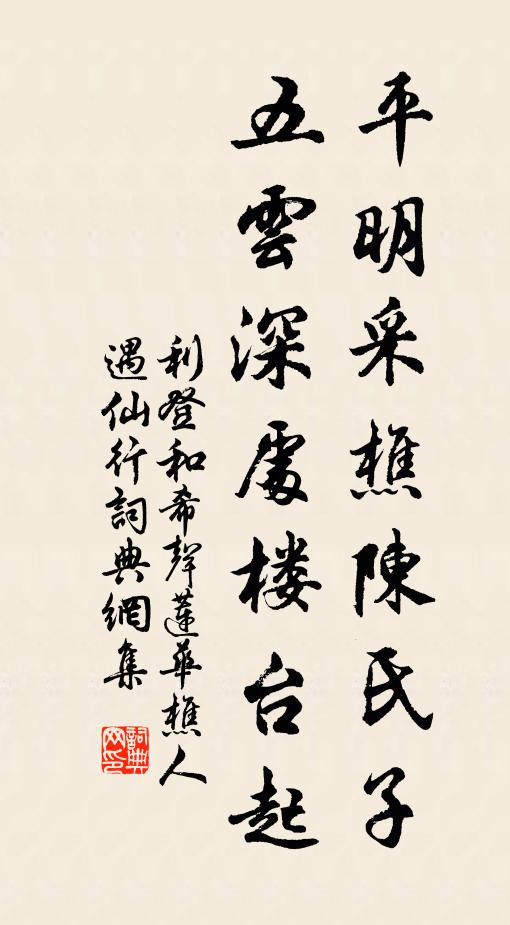 平明采樵陳氏子
五雲深處楼台起
利登和希聲蓮華樵人
遇仙行詞典網集
詞典
网印